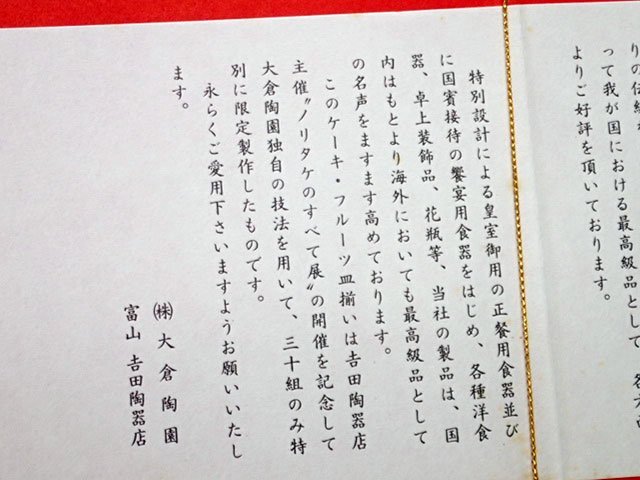 りの伝統
って我が国における最高級品として
よりご好評を頂いております。
特別設計による皇室御用の正餐用食器並び
に国賓接待の饗宴用食器をはじめ、各種洋食
器、卓上装飾品、花瓶等、当社の製品は、国
内はもとより海外においても最高級品として
の名声をますます高めております。
このケーキ・フルーツ皿揃いは𠮷田陶器店
主催〝ノリタケのすべて展〟の開催を記念して
大倉陶園独自の技法を用いて、三十組のみ特
別に限定製作したものです。
永らくご愛用下さいますようお願いいたし
ます。
㈱大倉陶園
富山 𠮷田陶器店